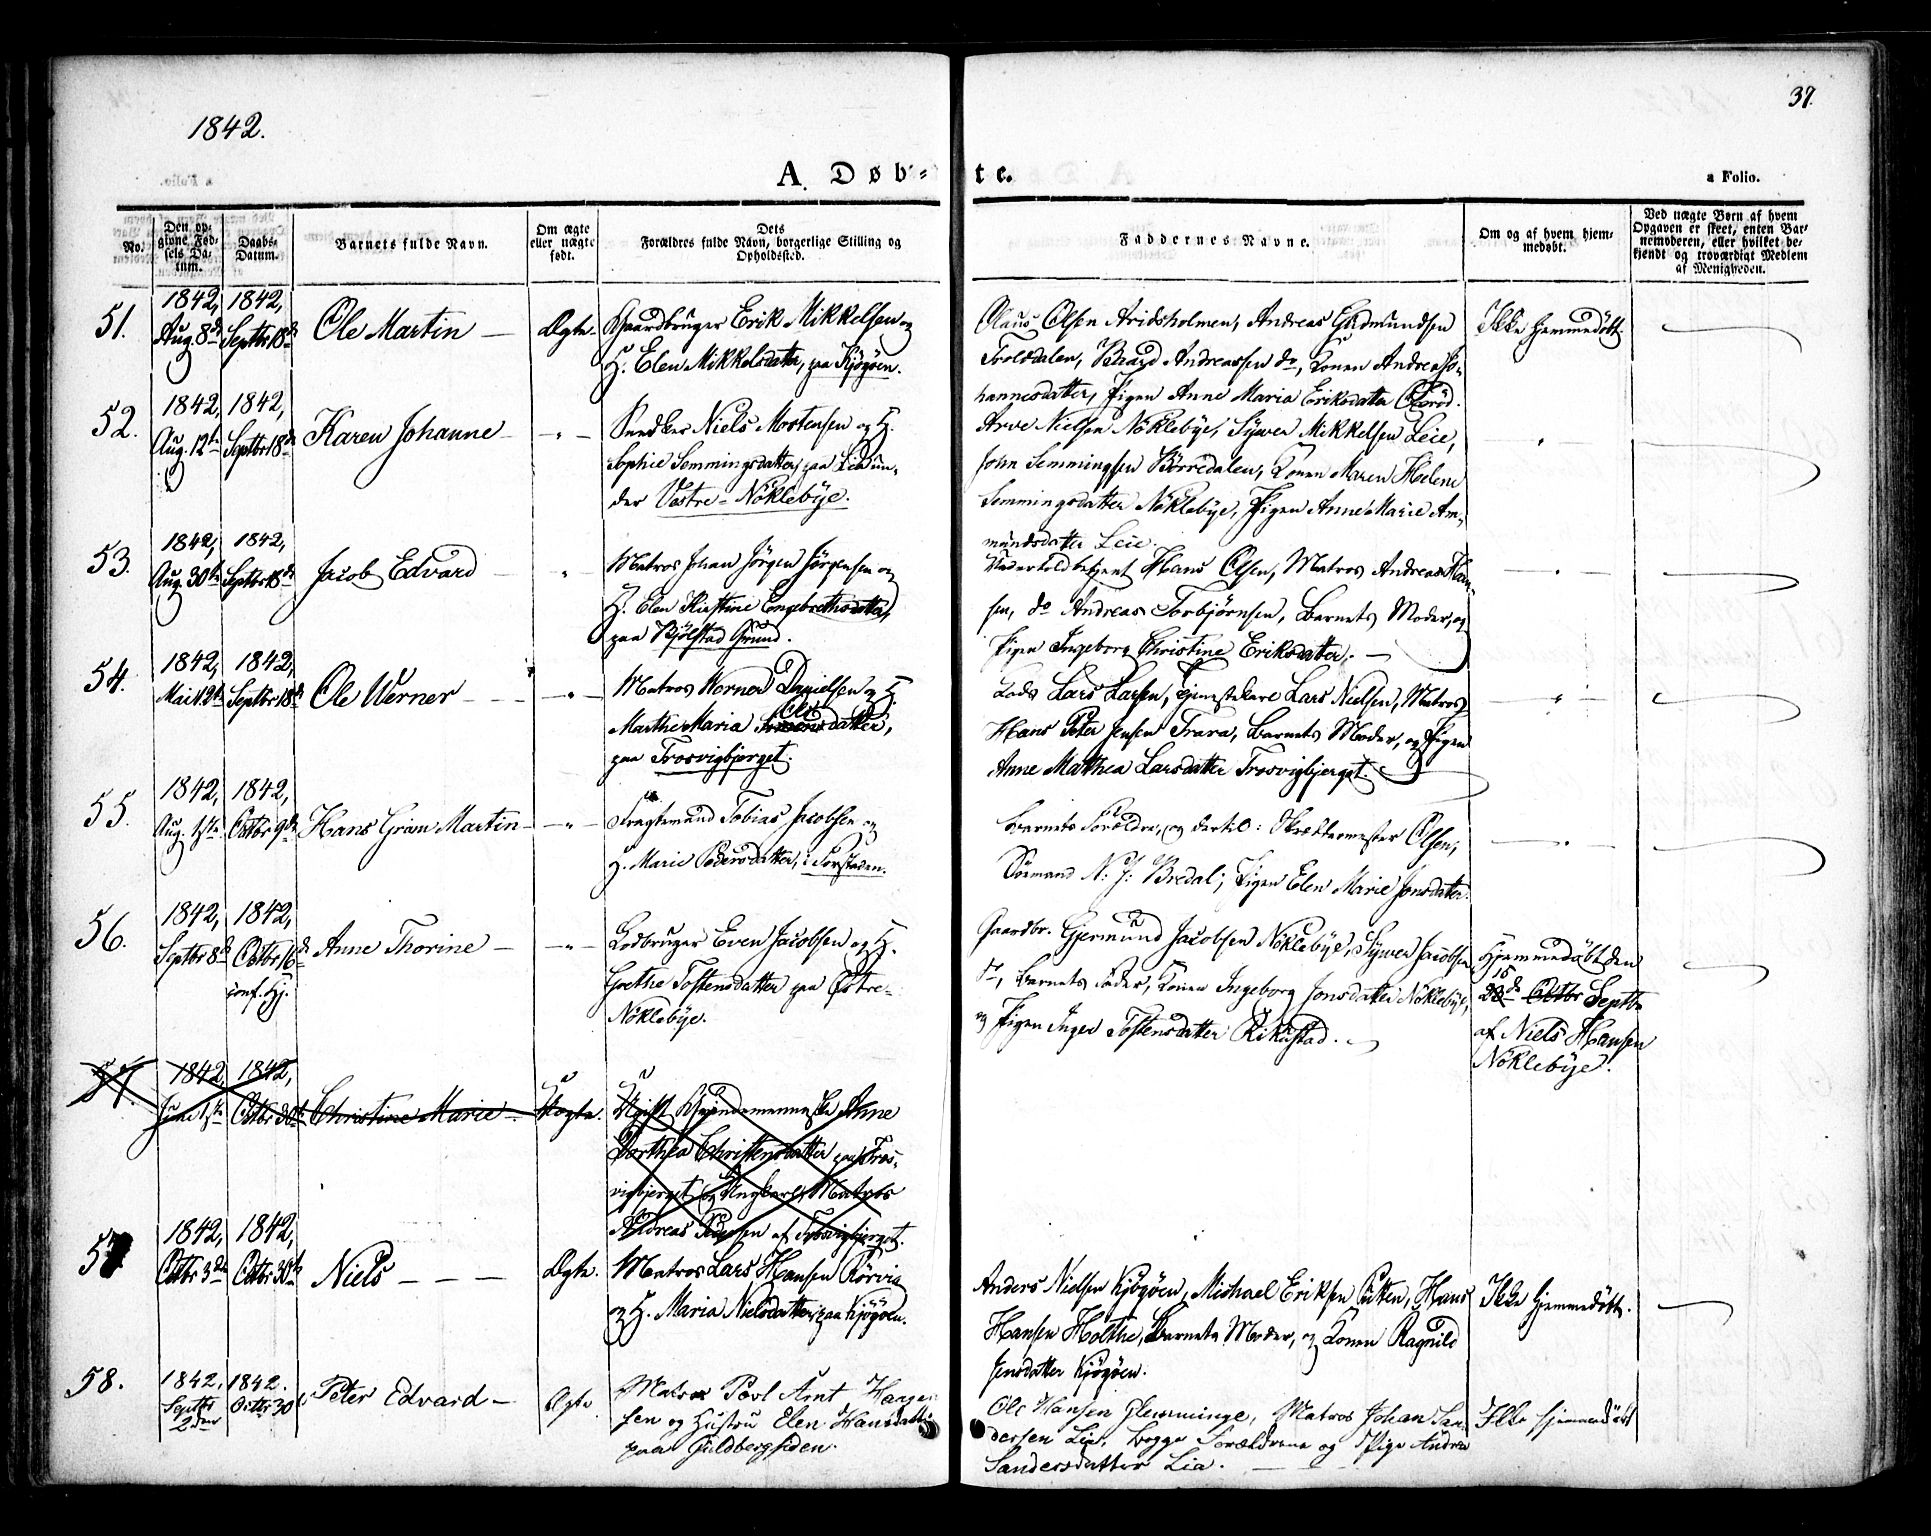 1842.
37.
A. Døb-
te.
a Folio.
No.
Den op-
givne Fød-
sels Da-
tum.
Daabs-
Datum.
Barnets fulde Navn.
Om ægte
eller uægte
født.
Dets
Forældres fulde Navn, borgerlige Stilling og
Opholdssted.
Faddernes Navne.
Om og af hvem hjem-
medøbt.
Ved uægte Børn af hvem
Opgaven er skeet, enten Bar-
nemoderen, eller hvilket be-
kjendt og troværdigt Medlem
af Menigheden.
51.
1842,
Aug. 8de
1842,
Septbr 18de
Ole Martin —
Ægte.
Gaardbruger Erik Mikkelsen og
H. Elen Mikkelsdatter, paa Kjøgøen.
Olaus Olsen Aridsholmen, Andreas Gudmundsen
Trolsdalen, Baard Andreassen do, Konen Andrea Jo-
hannesdatter, Pigen Anne Maria Eriksdatter
Ikke hjemmedøbt
52.
1842,
Aug. 12te
1842,
Septbr 18de
Karen Johanne
— " —
Snedker Niels Mortensen og H.
Sophie Semmingsdatter, paa Lia un-
der Vestre-Nöklebÿe.
Arve Nielsen Nöklebÿe, Syver Mikkelsen Leie,
John Semmingsen Börredalen, Konen Maren Helene
Semmingsdatter Nöklebÿe, Pigen Anne Marie Am-
mundsdatter Leie.
53.
1842,
Aug. 30te
1842,
Septbr 18de
Jacob Edvard
"
Matros Johan Jörgen Jörgensen og
H. Elen Kirstine Engebrethsdatter,
paa Kjölstad Grund.
Underholdbetjent Hans Olsen, Matros Andreas Han-
sen, do Andreas Torbjörnsen, Barnets Moder, og
Pigen Ingeborg Christine Eriksdatter. —
54.
1842,
Mai 12te
1842,
Septbr 18de
Ole Werner — — —
— " —
Matros Werner Danielsen og H.
Marthe Maria Olsdatter,
paa Trosvigbjerget.
Lods Lars Larsen, Tjenestekarl Lars Nielsen, Matros
Hans Peter Jensen Trara, Barnets Moder, og Pigen
Anne Mathea Larsdatter Trosvigbjerget.
55.
1842,
Aug. 1ste
1842,
Octbr 9de
Hans Grim Martin
— " —
Fragtemand Tobias Jacobsen og
H. Marie Pedersdatter, i Forstaden.
Barnets Forældre, og dertil: Skræddermester Olsen,
Sömand N: J: Bredal, Pigen Elen Marie Jonsdatter.
56.
1842,
Septbr 8de
1842,
Octbr 16de
conf. Hj.
Anne Thorine —
— " —
Lodbruger Even Jacobsen og H.
Grethe Tostensdatter paa Östre-
Nöklebÿe.
Gaardbr. Gjermund Jacobsen Nöklebÿe, Syver Jacobsen
do, Barnets Fader, Konen Ingeborg Jonsdatter Nöklebÿe,
og Pigen Inger Tostensdatter Rikustad.
Hjemmedöbt den
15de
Octbr Septbr
af Niels Hansen
Nöklebÿe.
57.
1842
Juni 1ste
1842,
Octbr 30te
Christine Marie
Uægte.
Ugift Qvindemenneske Anne
Dorthea Christensdatter paa Tros-
vigbjerget og Ungkarl, Matros
Andreas Pedersen af Trosvigbjerget.
57
1842,
Octbr 3de
1842,
Octbr 30te
Niels — — —
Ægte.
Matros Lars Hansen Rörvig
og H. Maria Nielsdatter, paa Kjögöen.
Anders Nielsen Kjögöen, Michael Eriksen Putten, Hans
Hansen Holthe, Barnets Moder, og Konen Ragnild
Jensdatter Kjögöen.
Ikke hjemmedøbt.
58.
1842.
Septbr
2den
1842.
Octbr 30
Peter Edvard —
Ægte
Matros Povl Arnt Hange-
sen og Hustru Elen Hansdatter
paa Guldbergsiden.
Ole Hansen Glemminge, Matros Johan San-
dersen Lie, begge Forældrene og Pige Andrea
Sandersdatter Lia.
Ikke hjemmedøbt